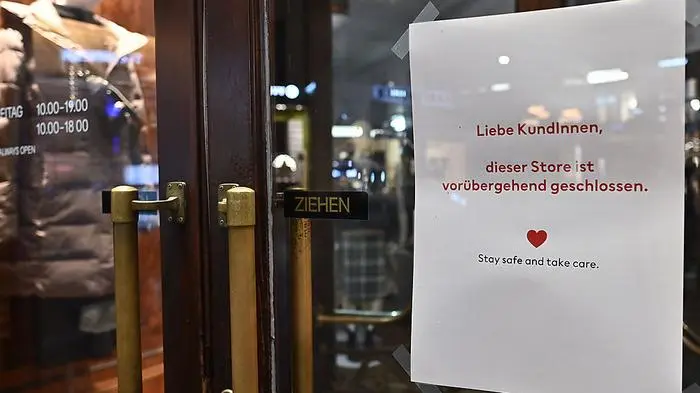 EITAG 10.00-19.00
10.00-18 00
ALWAYS OPEN
ZIEHEN
Liebe KundInnen,
dieser Store ist
vorübergehend geschlossen.
Stay safe and take care.